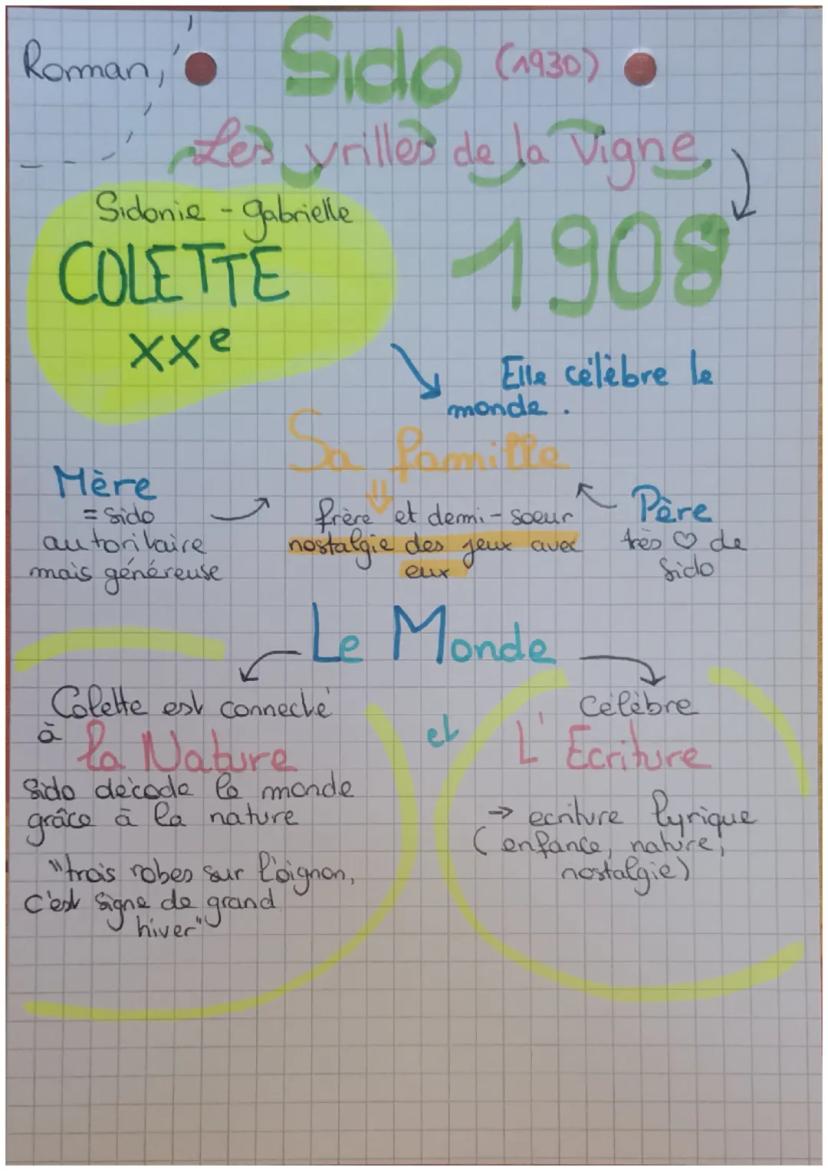 Roman,
Sido (1930)
Les vrilles de la Vigne
Sidonie - gabrielle
COLETTE
XXe
1908
Elle célèbre le
monde.
Sa famille
Mère
= sido
autoritaire
mais généreuse
frère et demi-soeur
nostalgie des jeux avec
eux
Père
très ♡ de
Sido
Le Monde
Colette est connecté
à la Nature
Sido décode le monde
grâce à la nature
"trois robes sur l'oignon,
c'est signe de grand
hiver"
et
Célèbre
L'Ecriture
→ ecriture lyrique
(enfance, nature,
nostalgie)